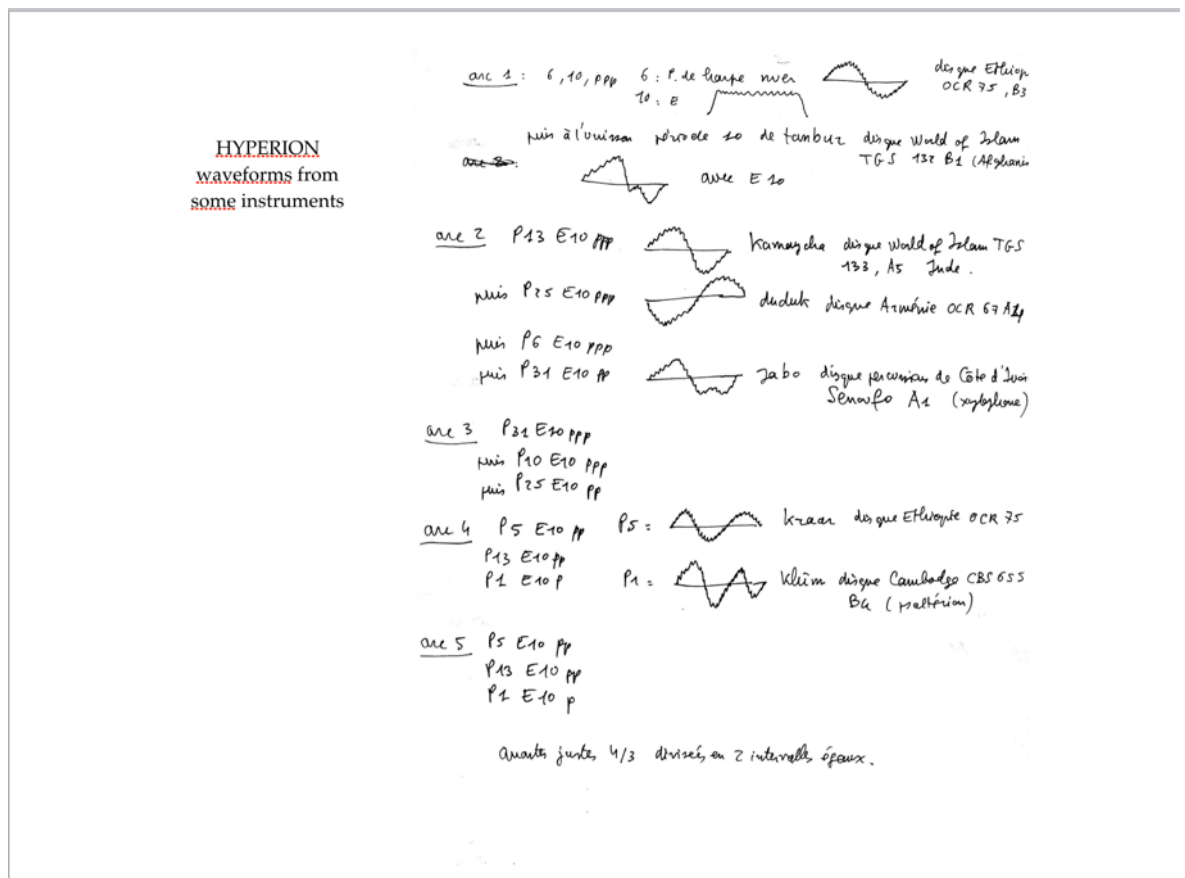 HYPERION
waveforms from
some instruments
arc 1 : 6, 10, ppp 6 : P. de harpe nuer disque Ethiop
10 : E OCR 75, B3
puis à l'unisson période 10 de tanbur disque World of Islam
avec E 10 TGS 132 B1 (Afghanis
arc 2 P13 E10 ppp Kamaycha disque World of Islam TGS
133, A5 Inde.
puis P25 E10 ppp duduk disque Arménie OCR 67
puis P6 E10 ppp
puis P31 E10 pp disque percussions de Côte d'Ivoi
Senoufo A1 (xylophone)
arc 3 P31 E10 ppp
puis P10 E10 ppp
puis P25 E10 pp
arc 4 P5 E10 pp P5 = kraar disque Ethiopie OCR 75
P13 E10 pp
P1 E10 p P1 = Khim disque Cambodge CBS 655
B4 (psaltérion)
arc 5 P5 E10 pp
P13 E10 pp
P1 E10 p
quartes justes 4/3 divisées en 2 intervalles égaux.